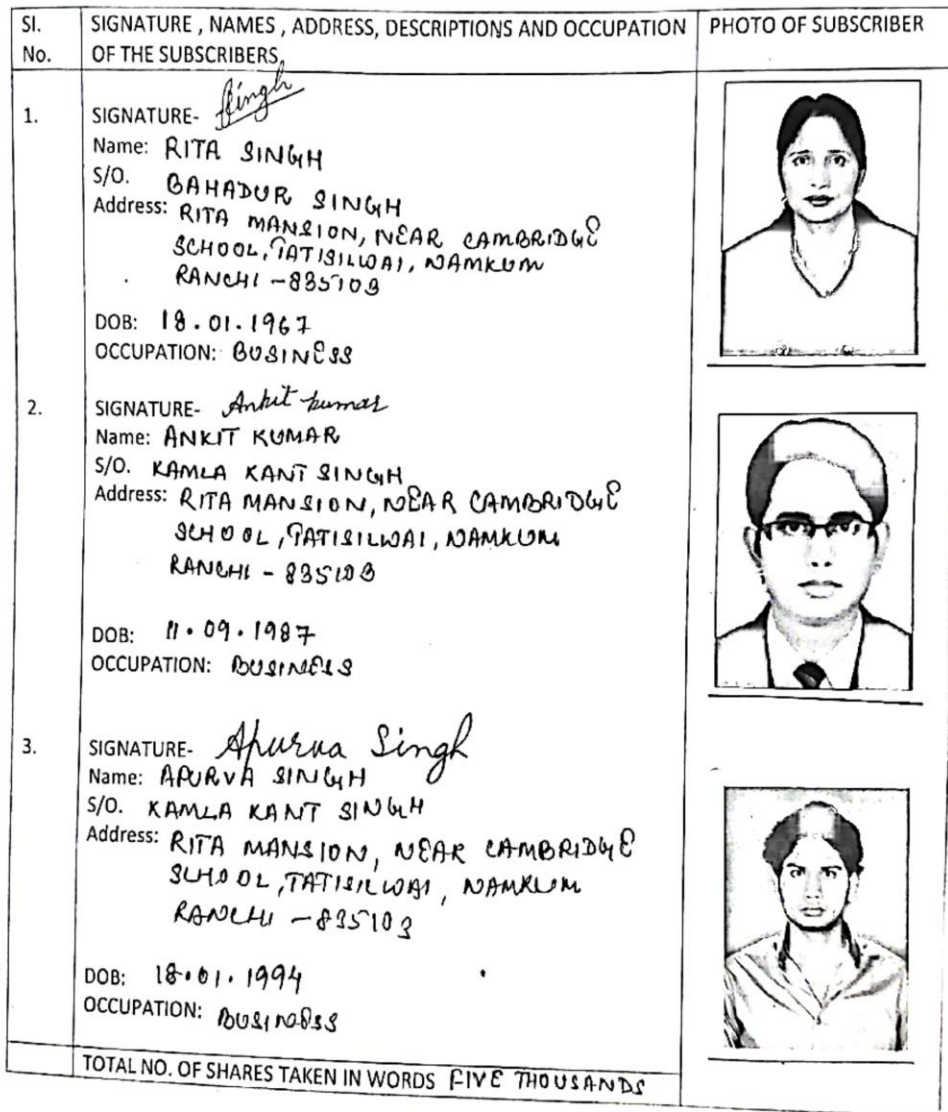 Sl. No.
SIGNATURE , NAMES , ADDRESS, DESCRIPTIONS AND OCCUPATION
OF THE SUBSCRIBERS
PHOTO OF SUBSCRIBER
1.
SIGNATURE- Singh
Name: RITA SINGH
S/O. BAHADUR SINGH
Address: RITA MANSION, NEAR CAMBRIDGE
SCHOOL, TATISILWAI, NAMKUM
RANCHI - 835103
DOB: 18.01.1967
OCCUPATION: BUSINESS
2.
SIGNATURE- Ankit kumar
Name: ANKIT KUMAR
S/O. KAMLA KANT SINGH
Address: RITA MANSION, NEAR CAMBRIDGE
SCHOOL, TATISILWAI, NAMKUM
RANCHI - 835103
DOB: 11.09.1987
OCCUPATION: BUSINESS
3.
SIGNATURE- Apurva Singh
Name: APURVA SINGH
S/O. KAMLA KANT SINGH
Address: RITA MANSION, NEAR CAMBRIDGE
SCHOOL, TATISILWAI, NAMKUM
RANCHI - 835103
DOB: 18.01.1994
OCCUPATION: BUSINESS
TOTAL NO. OF SHARES TAKEN IN WORDS FIVE THOUSANDS